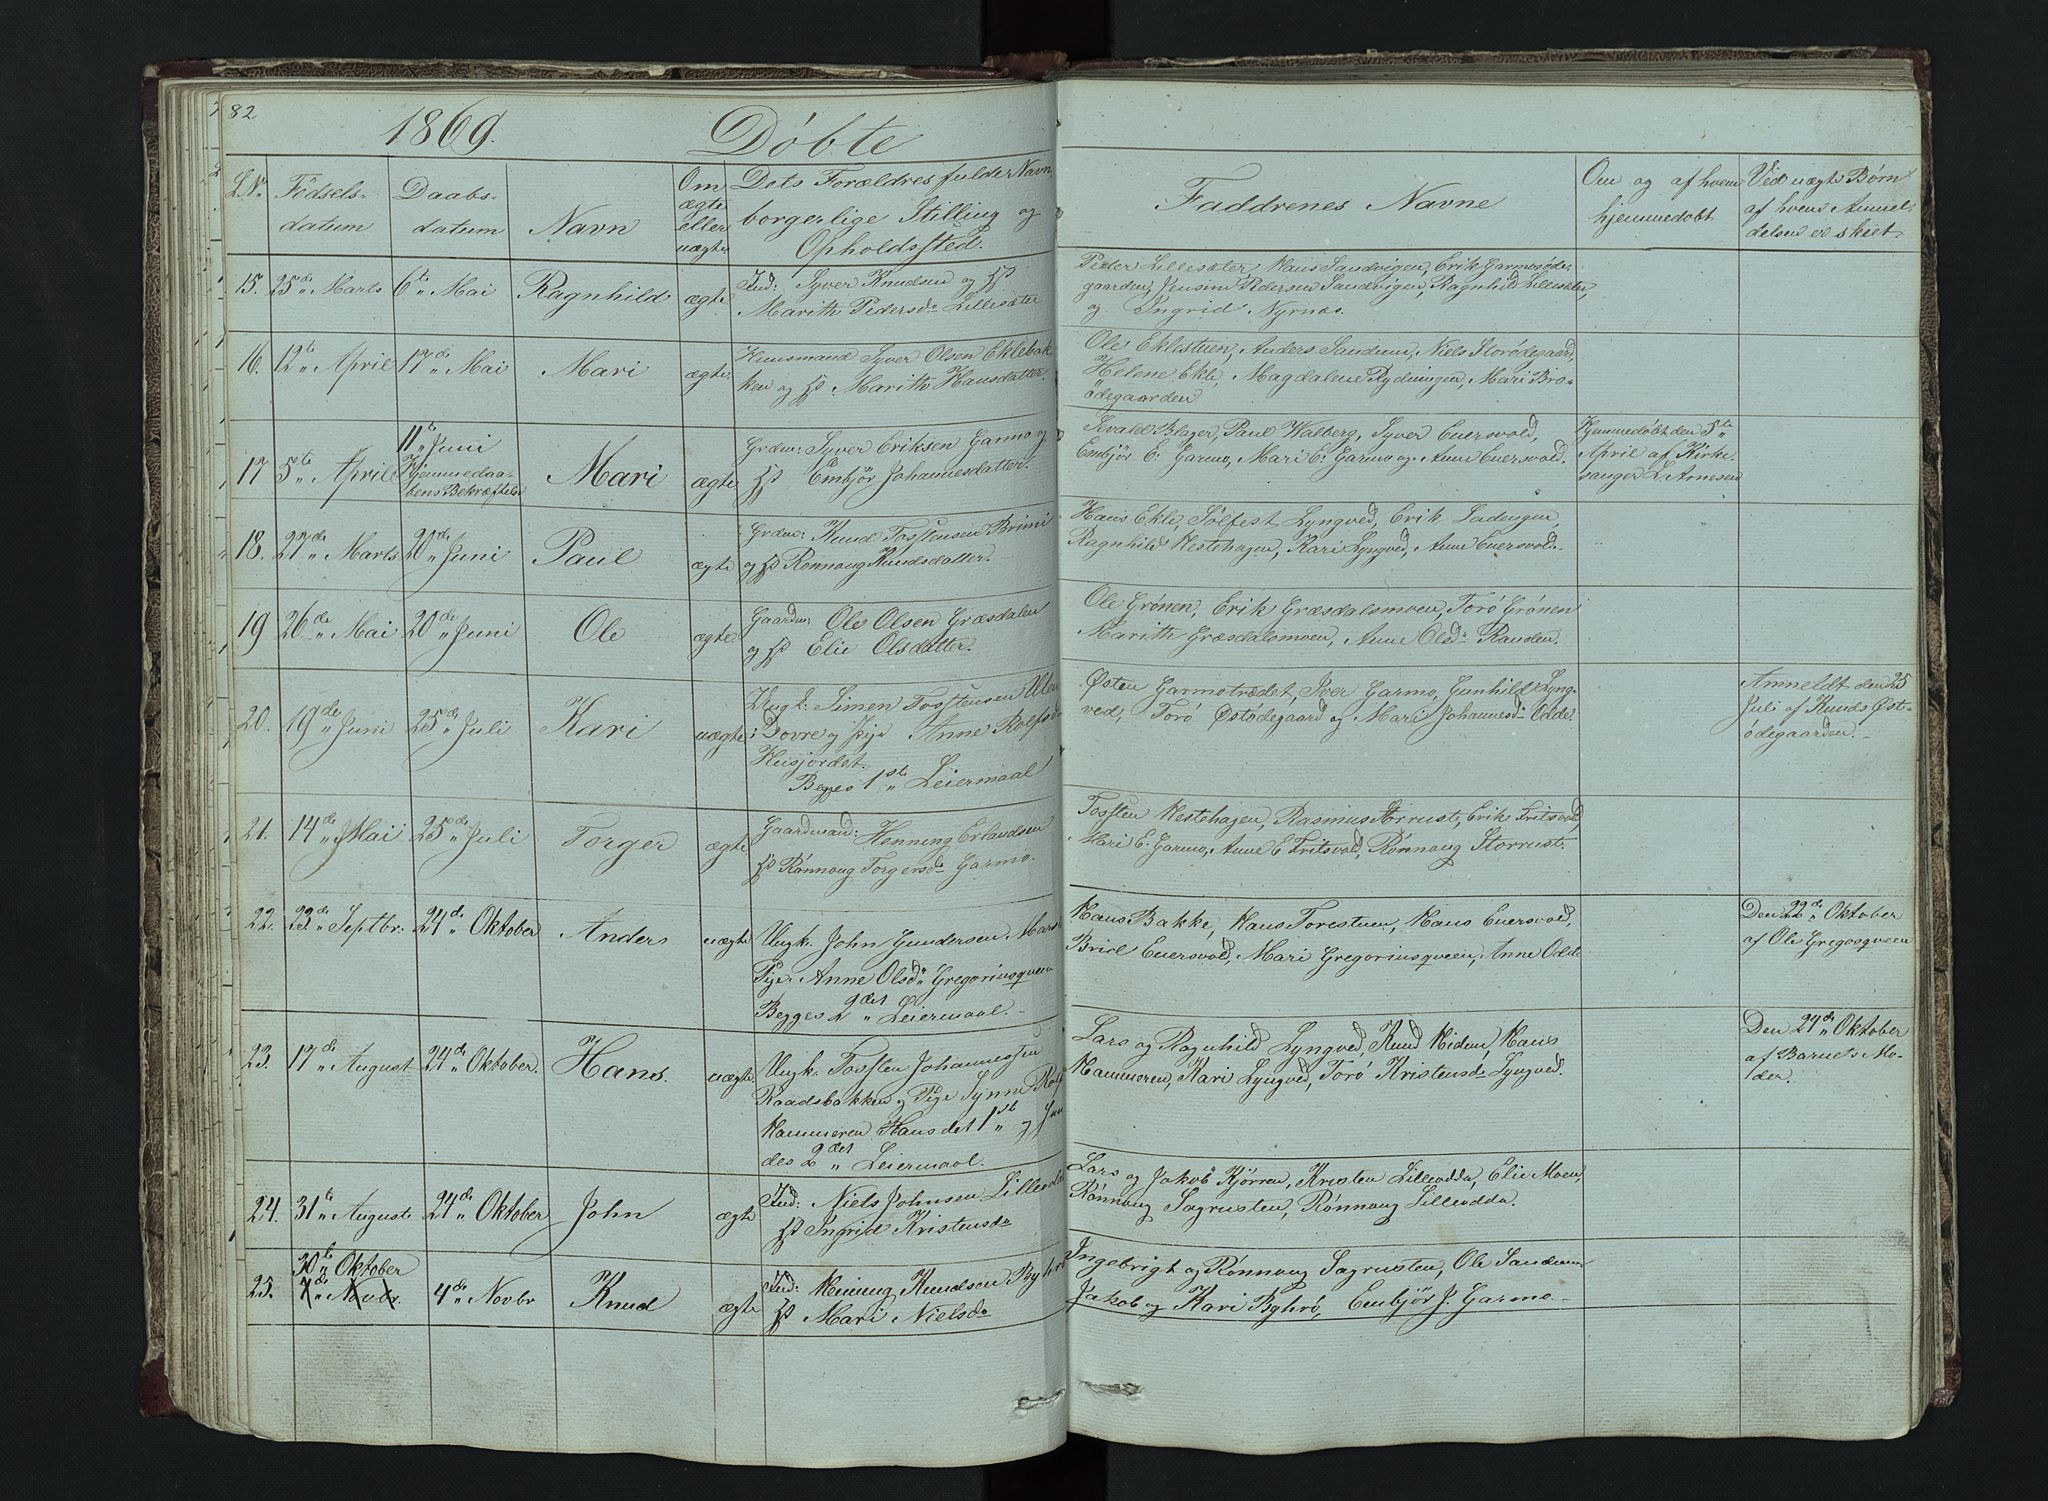 82
1869.
Döbte
L.N.
Födsels-
datum
Daabs-
datum
Navn
Om
ægte
eller
uægte
Dets Forældres fulde Navn,
borgerlige Stilling og
Opholdssted.
Faddrenes Navne
Om og af hvem
hjemmedöbt
Ved uægte Børn
af hvem Anmel-
delsen er skeet.
15. 25de Marts 6te Mai Ragnhild ægte
Ind: Syver Knudsen og Hst
Marith Pedersdr Lillesæter
Peder Lillesæter, Hans Sandvigen, Erik Garmoöde-
gaarden, Pedersen Sandvigen, Ragnhild Lillesæter,
og Ingrid Nyrnæs.
16. 12te April 17de Mai Mari ægte
Huusmand Syver Olsen Eklebak-
ken og Hst: Marith Hansdatter.
Ole Eklestuen, Anders Sandum, Niels Storödegaard,
Helene Ekle, Magdalene Rydningen, Mari Bro-
ödegaarden
17 5te April
11te Juni
Hjemmedaa-
bens Bekræftelse
Mari ægte
Grdm: Syver Eriksen Garmo og
Hst Embjör Johannesdatter.
Sevald Blager, Paul Walberg, Syver Euersvold,
Embjör E. Garmo, Mari E. Garmo og Anne Euersvold.
Hjemmedöbt den 5te
April af Kirke-
sanger L. Arnesen
18. 27de Marts 20de Juni Paul ægte
Grdm: Knud Tostensen Brimi
og Hst Rönnoug Knudsdatter.
Hans Ekle, Sölfest Lyngved, Erik
Ragnhild Hestehagen, Kari Lyngved, Anne Euersvold.
19 26de Mai 20de Juni Ole ægte
Gaardm: Ole Olsen Græsdalen
og Hst Elie Olsdatter.
Ole Grönen, Erik Græsdalsmoen, Torö Grönen
Marith Græsdalsmoen, Anne Olsdr Randen.
20. 19de Juni 25de Juli Kari uægte
Ungk: Simen Tostensen
i Dovre og Pige Anne Rolfsdr
Husjordet.
Begges 1ste Leiermaal
Østen Garmotrædet, Iver Garmo, Gunhild Lyng-
ved, Torö Östödegaard og Mari Johannesdr Odde.
Anmeldt den 25
Juli af Knuds Öst-
ödegaarden.
21. 14de Mai 25de Juli Torger ægte
Gaardmand: Henning Erlandsen
Hst Rönnoug Torgersdr Garmo.
Tosten Hestehagen, Rasmus Storrust, Erik Fritsvold,
Mari E. Garmo, Anne E Fritsvold, Rönnoug Storrust.
22. 23de Septbr. 24de Oktober Anders uægte
Ungk. John Gundersen
Pige Anne Olsdr Gregoriusqveen
Begges 2det Leiermaal.
Hans Bakke, Hans Forestuen, Hans Euersvold,
Brid Euersvold, Mari Gregoriusqveen, Anne Odde
Den 22de Oktober
af Ole Gregosqveen
23. 17de August 24de Oktober. Hans. uægte
Ungk. Tosten Johannessen
Raadsbakken og Pige Synne
Hammeren Hans det 1ste og
des 2det Leiermaal.
Lars og Ragnhild Lyngved, Knud Hidem, Hans
Hammeren, Kari Lyngved, Torö Kristensdr Lyngved.
Den 24de Oktober
af Barnets Mo-
der.
24. 31te August 24de Oktober John ægte
Ind: Niels Johnsen
Hst Ingrid Kristensdr
Lars og Jakob Kjörren, Kristen Lilleodda, Elie Moen,
Rönnoug Sagrusten, Rönnoug Lilleodda.
30te Oktober
25. 7de Novbr. 4de Novbr Knud ægte
Ind: Heining Knudsen
Hst Mari Nielsdr
Ingebrigt og Rönnoug Sagrusten, Ole Sandum
Jakob og Kari Byhrö, Embjör J. Garmo